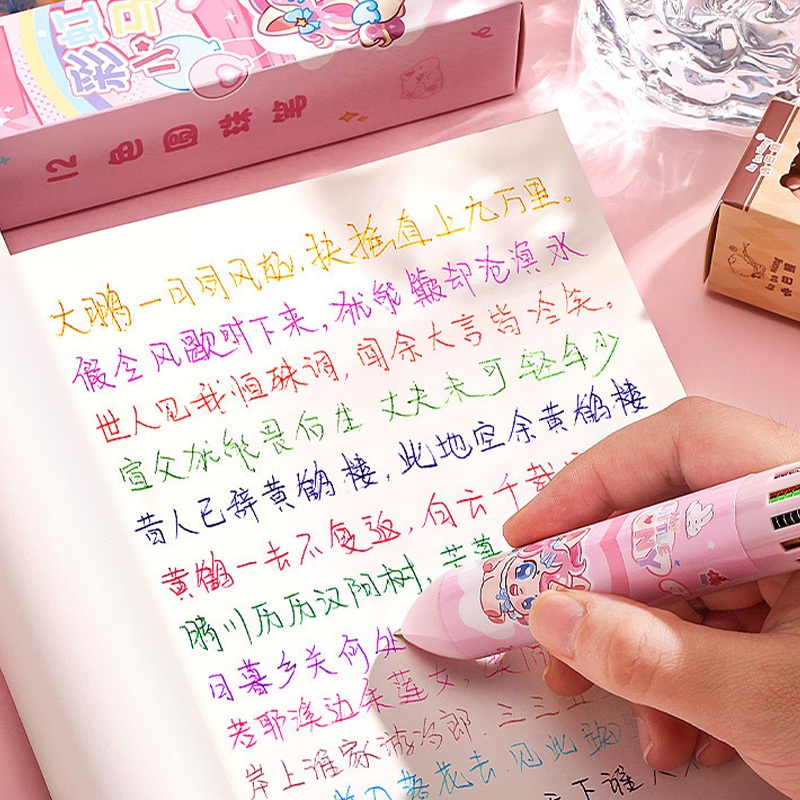 彩虹
小马
12色圆珠笔
大鹏一日同风起,扶摇直上九万里。
假令风歇时下来,犹能簸却沧溟水
世人见我恒殊调,闻余大言皆冷笑。
宣父犹能畏后生 丈夫未可轻年少
昔人已辞黄鹤楼,此地空余黄鹤楼
黄鹤一去不复返,白云千载
晴川历历汉阳树,芳草
日暮乡关何处
若耶溪边采莲女,
岸上谁家游冶郎.三三
落花去.见此踟
下谁人